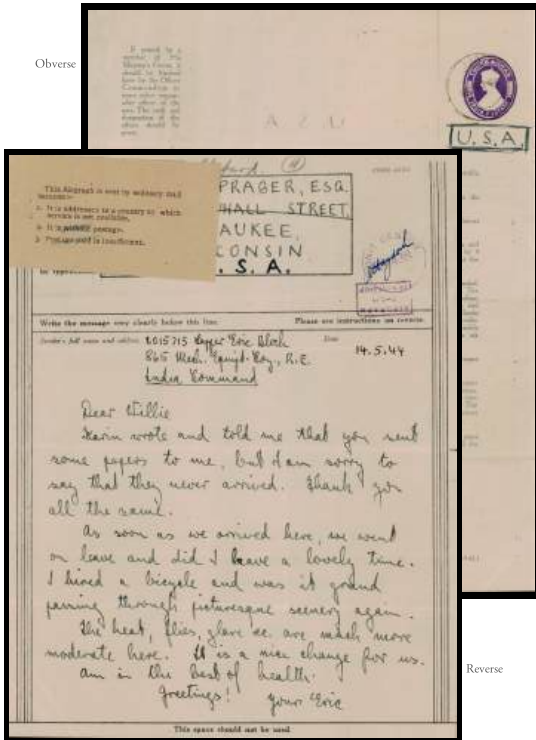 Obverse
If posted by a
member of His
Majesty's Forces, it
should be handed
U.S.A.
This Airgraph is sent by ordinary mail
because:-
a. It is addressed to a country to which
service is not available.
b. It is without postage.
c. Postage paid is insufficient.
PRAGER, ESQ.
HALL STREET,
AUKEE,
CONSIN
. S. A.
Write the message very clearly below this line.
Please see instructions on reverse.
Sender's full name and address
2015715 Sapper Eric Bloch
Date
14.5.44
865 Mech. Equipt. Coy., R.E.
India Command
Dear Willie
Karin wrote and told me that you sent
some papers to me, but I am sorry to
say that they never arrived. Thank you
all the same.
As soon as we arrived here, we went
on leave and did I have a lovely time.
I hired a bicycle and was it grand
passing through picturesque scenery again.
The heat, flies, glare etc. are much more
moderate here. It is a nice change for us.
Am in the best of health.
Greetings! Your Eric
This space should not be used
Reverse